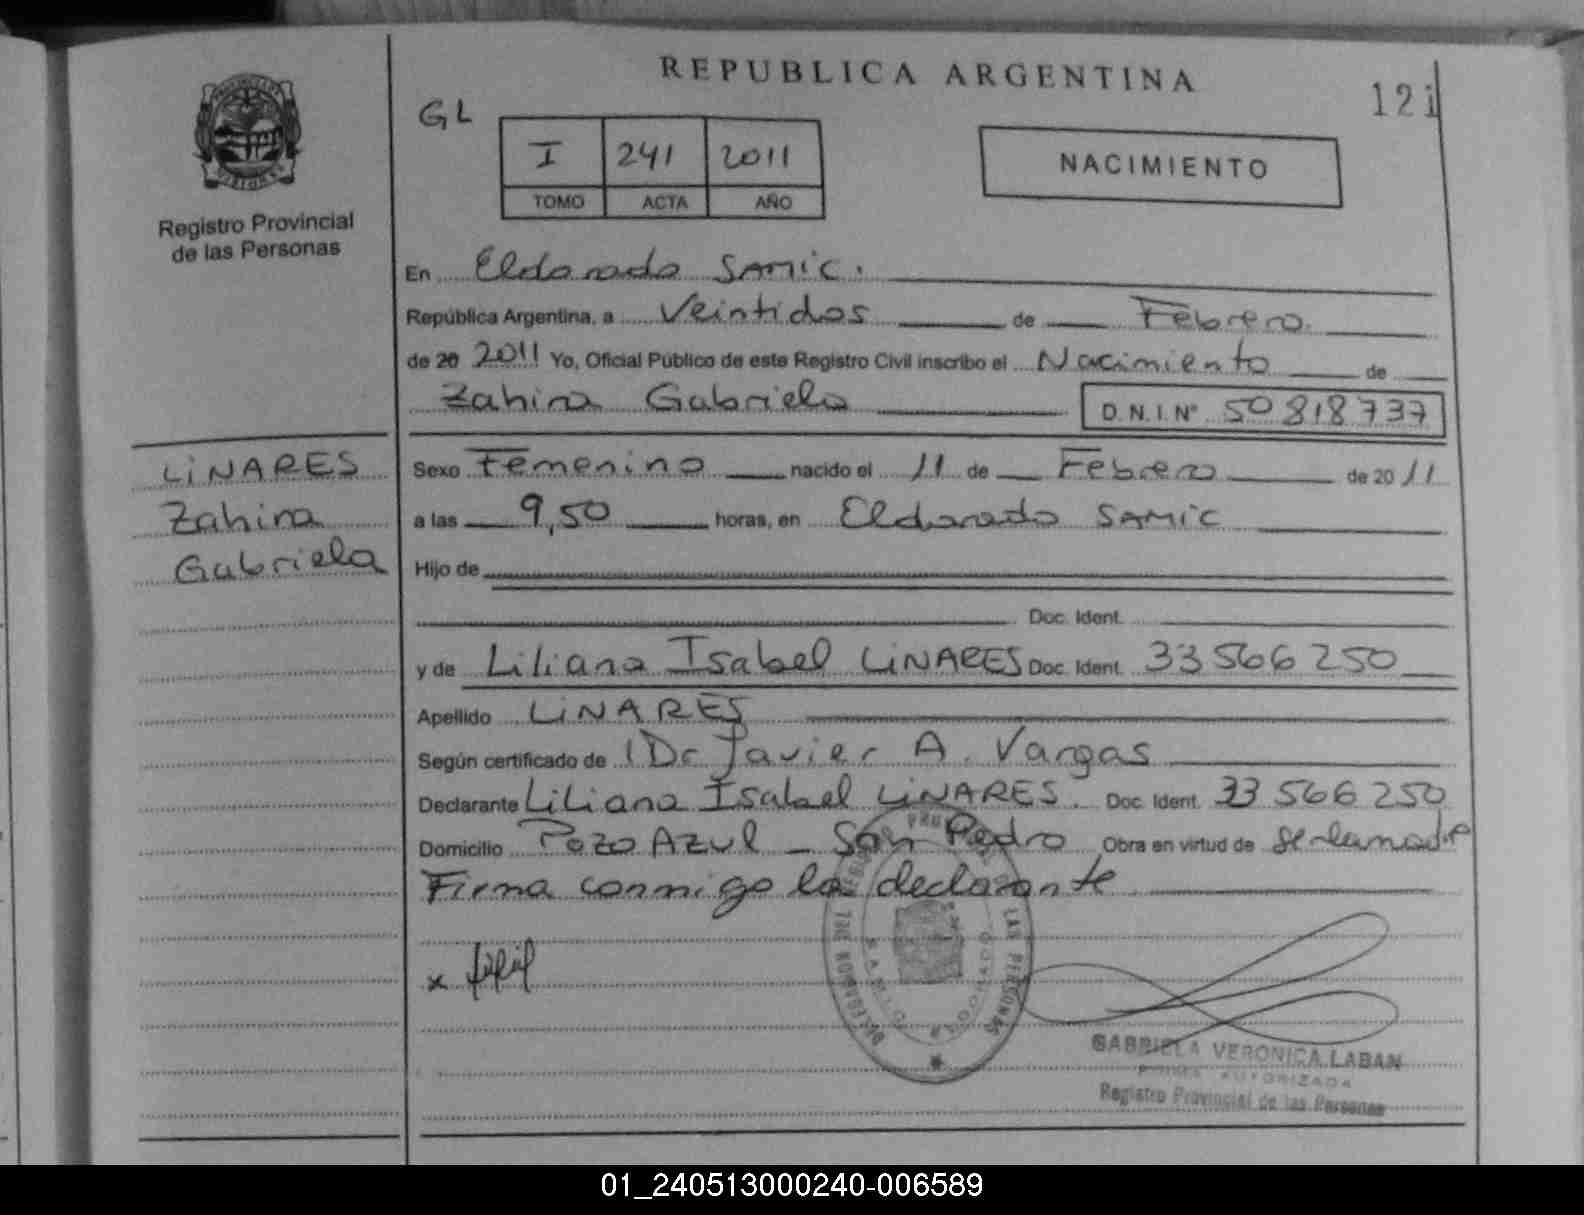 REPUBLICA ARGENTINA
GL
I 241 2011
TOMO ACTA AÑO
NACIMIENTO
Registro Provincial
de las Personas
En Eldorado SAMIC.
República Argentina, a Veintidos de Febrero
de 20 2011 Yo, Oficial Público de este Registro Civil inscribo el Nacimiento de
Zahira Gabriela D.N.I.Nº 50818737
LiNARES
Zahira
Gabriela
Sexo Femenino nacido el 11 de Febrero de 20 11
a las 9,50 horas, en Eldorado SAMIC
Hijo de
Doc. Ident.
y de Liliana Isabel LiNARES Doc. Ident. 33566250
Apellido LiNARES
Según certificado de Dr Javier A. Vargas
Declarante Liliana Isabel LiNARES. Doc. Ident. 33566250
Domicilio Pozo AZul - San Pedro Obra en virtud de
Firma conmigo la declarante
x
LAS PERSONAS
GABRIELA VERONICA LABAN
FIRMA AUTORIZADA
Registro Provincial de las Personas
01_240513000240-006589